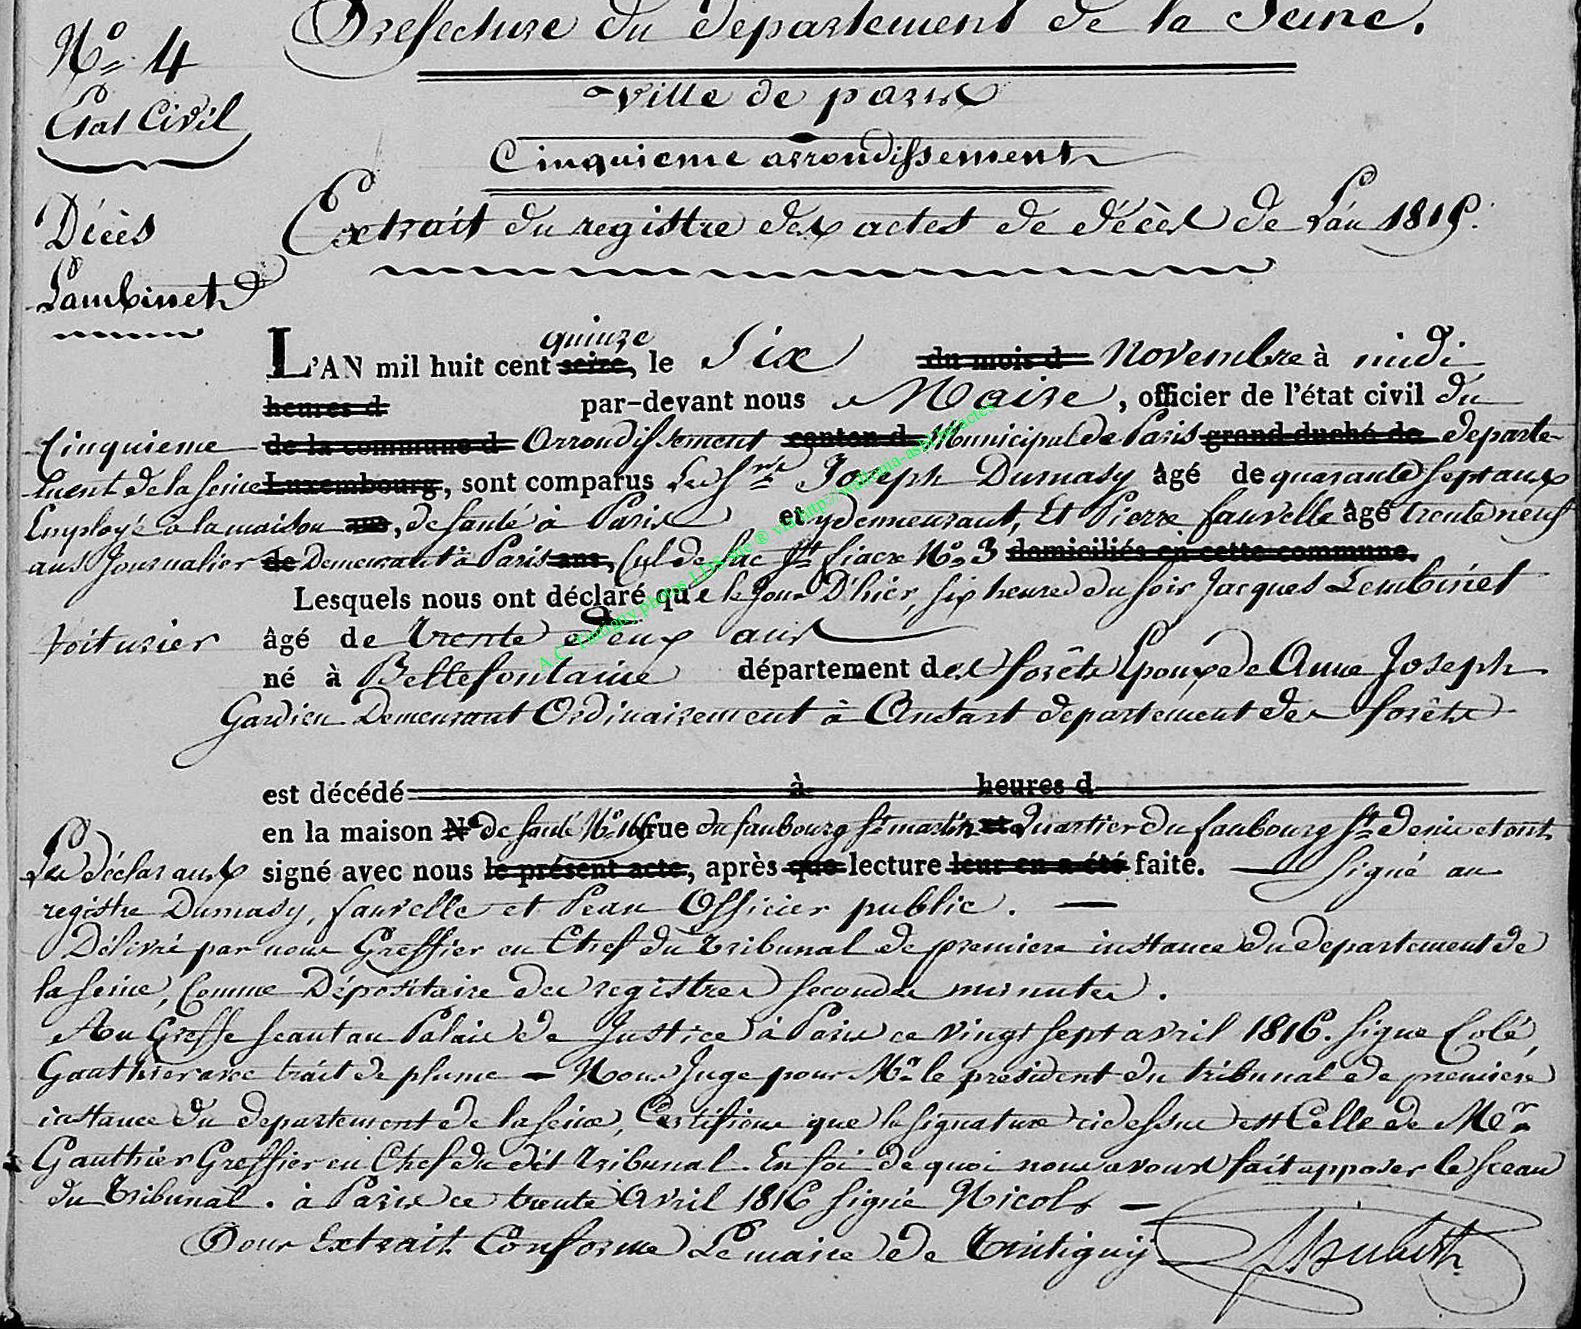 Préfecture du département de la Seine.
N.º 4
Etat Civil
Ville de paris
Cinquieme arrondissement
Décès
Lambinet
Extrait du registre des actes de décès de L'an 1815.
quinze
L'AN mil huit cent seize, le Six du mois d Novembre à midi
heures d par-devant nous Maire, officier de l'état civil du
Cinquieme de la commune d Arrondissement canton d Municipal de Paris grand duché de departe-
ment de la Seine Luxembourg, sont comparus Le Sr. Joseph Dumasy âgé de quarante sept ans
Employé à la maison ans, de santé à Paris et y demeurant, Et Pierre fauvelle âgé trente neuf
ans Journalier de Demeurant à Paris ans, Cul de Sac St. fiacre N.º 3 domiciliés en cette commune.
Lesquels nous ont déclaré que le jour D'hier, six heures du soir Jacques Lembinet
Voiturier âgé de trente Deux ans
né à Bellefontaine département des forêts Epoux de Anne Joseph
Gardien Demeurant Ordinairement à Anstart departement des forêts
est décédé à heures d
en la maison N.º de santé N.º rue du faubourg St. martin Quartier du faubourg St. Denis et ont
Les déclarants signé avec nous le présent acte, après que lecture leur en a été faite. — Signé au
registre Dumasy, fauvelle et Peau Officier public. —
Délivré par nous Greffier en Chef du tribunal de premiere instance du departement de
la Seine, Comme Dépositaire des registres secondes minutes.
Au Greffe seant au Palais de Justice à Paris ce vingt sept avril 1816. Signé Colé,
Gauthier avec trait de plume — Nous Juge pour Mr. le president du tribunal de premiere
instance du departement de la seine, Certifions que la signature ci dessus est Celle de Mr.
Gauthier Greffier en Chef du dit tribunal. En foi de quoi nous avons fait apposer le sceau
du tribunal. à Paris ce trente Avril 1816 signé Nicols —
Pour Extrait Conforme Le maire de Tintigny
A.C. Tintigny photos LDS-site ® via http://wallonia-asbl.be/actes